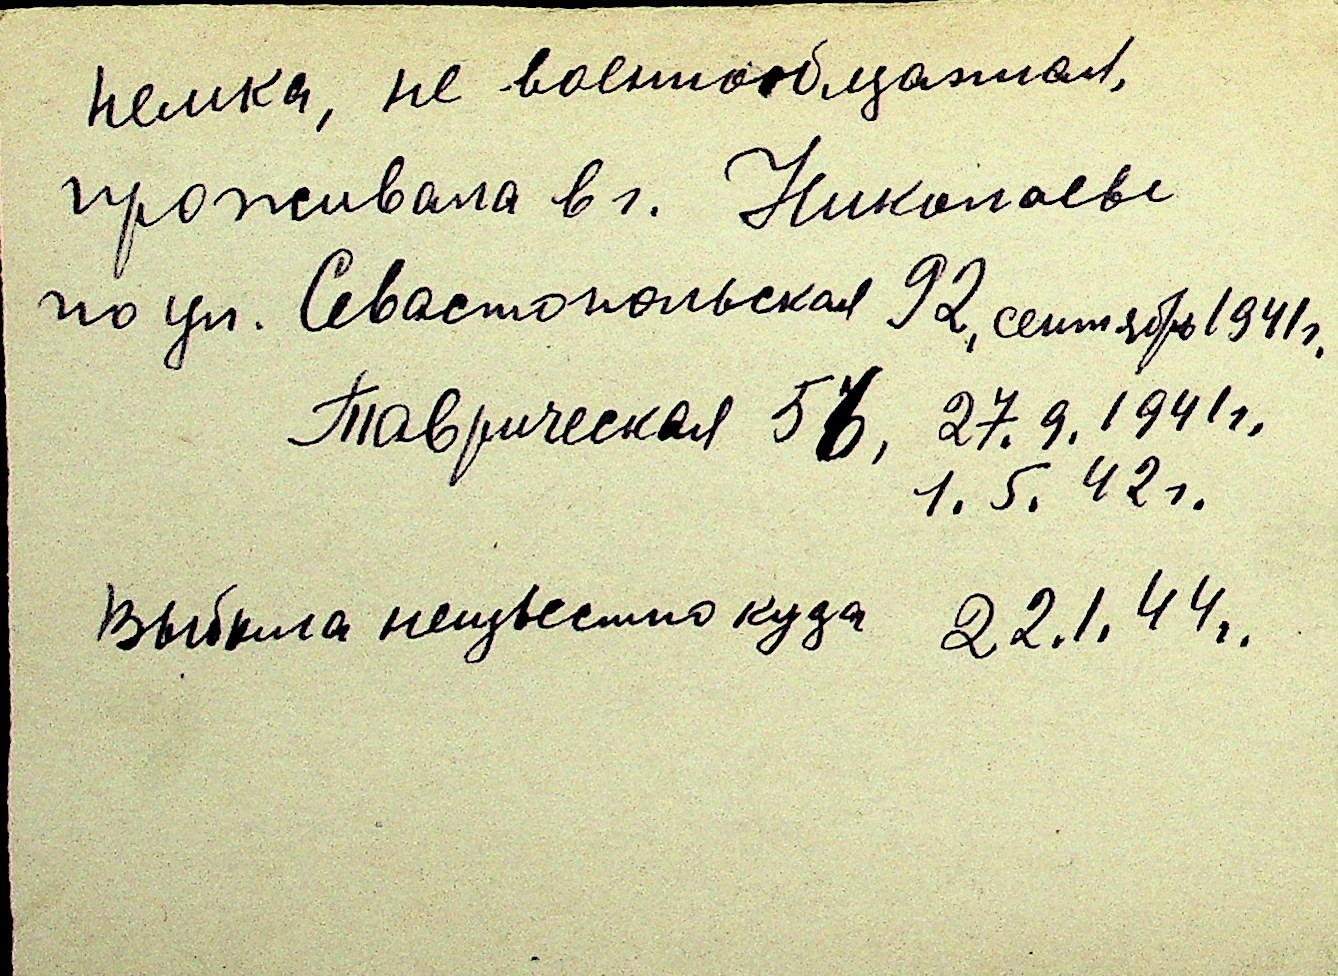 немка, не военнообязаная,
проживала в г. Николаеве
по ул. Севастопольская 92, сентябрь 1941г.
Таврическая 56, 27.9.1941г.
1.5.42г.
Выбыла неизвестно куда 22.1.44г.